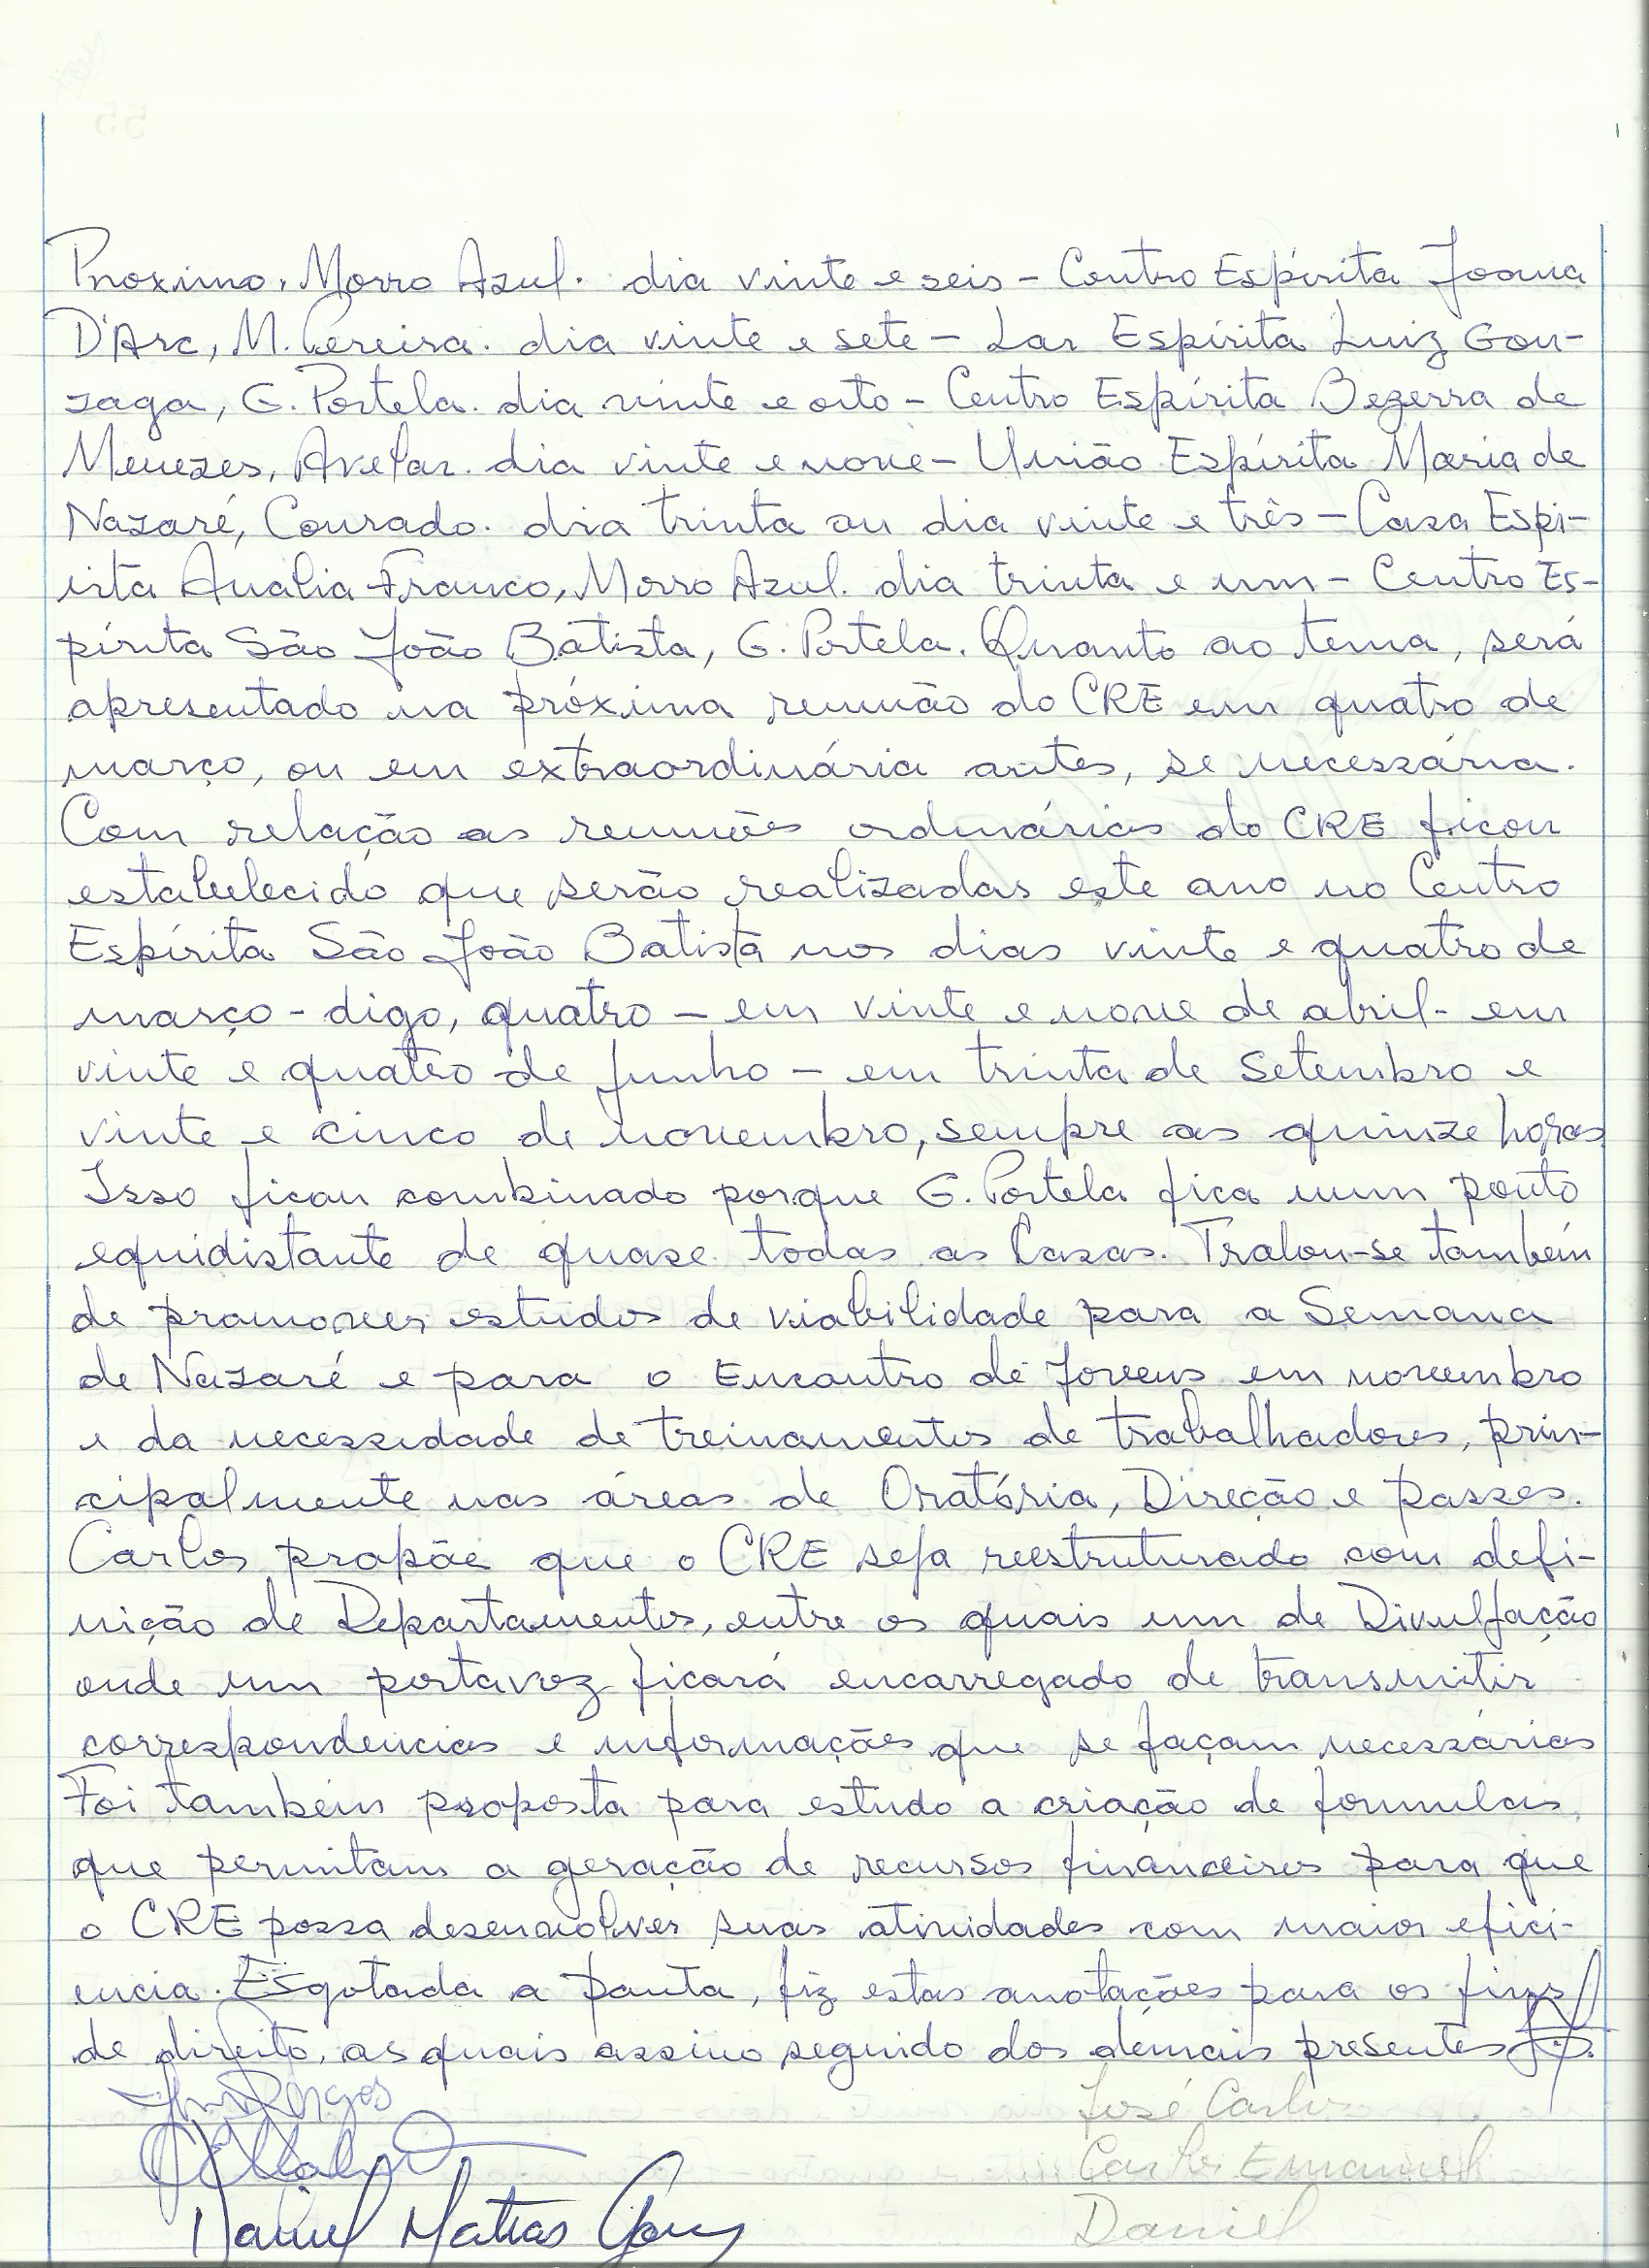 Proximo, Morro Azul. dia vinte e seis - Centro Espírita Joana
D'Arc, M. Pereira. dia vinte e sete - Lar Espírita Luiz Gon-
zaga, G. Portela. dia vinte e oito - Centro Espírita Bezerra de
Menezes, Avelar. dia vinte e nove - União Espírita Maria de
Nazaré, Conrado. dia trinta ou dia vinte e três - Casa Espi-
irta Analia Franco, Morro Azul. dia trinta e um - Centro Es-
pírita São João Batista, G. Portela. Quanto ao tema, será
apresentado na próxima reunião do CRE em quatro de
março, ou em extraordinária antes, se necessária.
Com relação as reuniões ordinárias do CRE ficou
estabelecido que serão realizadas este ano no Centro
Espírita São João Batista nos dias vinte e quatro de
março - digo, quatro - em vinte e nove de abril - em
vinte e quatro de junho - em trinta de setembro e
vinte e cinco de novembro, sempre as quinze horas
Isso ficou combinado porque G. Portela fica num ponto
equidistante de quase todas as Casas. Tratou-se também
de promover estudos de viabilidade para a Semana
de Nazaré e para o Encontro de Jovens em novembro
e da necessidade de treinamentos de trabalhadores, prin-
cipalmente nas áreas de Oratória, Direção e passes.
Carlos propõe que o CRE seja reestruturado com defi-
nição de Departamentos, entre os quais um de Divulgação
onde um portavoz ficará encarregado de transmitir
correspondencias e informações que se façam necessárias
Foi também proposta para estudo a criação de formulas
que permitam a geração de recursos financeiros para que
o CRE possa desenvolver suas atividades com maior efici-
encia. Esgotada a pauta, fiz estas anotações para os fins
de direito, as quais assino seguido dos demais presentes
José Carlos
Carlos Emanuel
Daniel Matias Gomes
Daniel